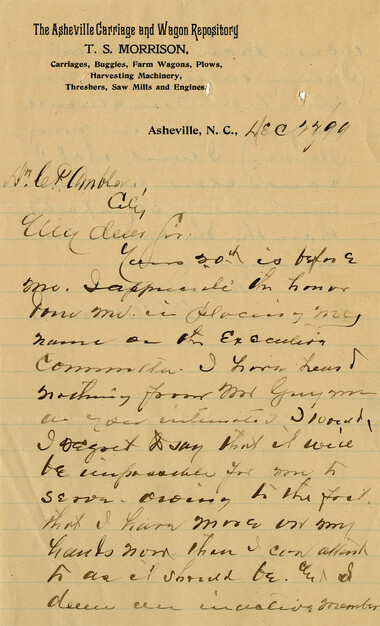 The Asheville Carriage and Wagon Repository
T. S. MORRISON,
Carriages, Buggies, Farm Wagons, Plows,
Harvesting Machinery,
Threshers, Saw Mills and Engines.
Asheville, N. C., Dec 99
Dr. C. P. Ambler.
City,
My dear Sir.
Yours 20th is before
me. I appreciate the honor
done me in placing my
name on the Executive
Committee. I have heard
nothing from Mr Gwynn
as you intimated I would,
I regret to say that it will
be impossible for me to
serve. owing to the fact.
that I have more on my
hands now than I can attend
to as it should be. and I
deem an inactive member